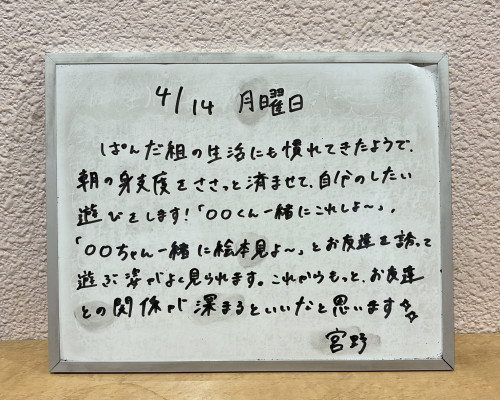 4/14 月曜日
ぱんだ組の生活にも慣れてきたようで、
朝の身支度をささっと済ませて、自分のしたい
遊びをします!「〇〇くん一緒にこれしよ〜」、
「〇〇ちゃん一緒に絵本見よ〜」とお友達を誘って
遊ぶ姿がよく見られます。これからもっと、お友達
との関係が深まるといいなと思います☆
宮野